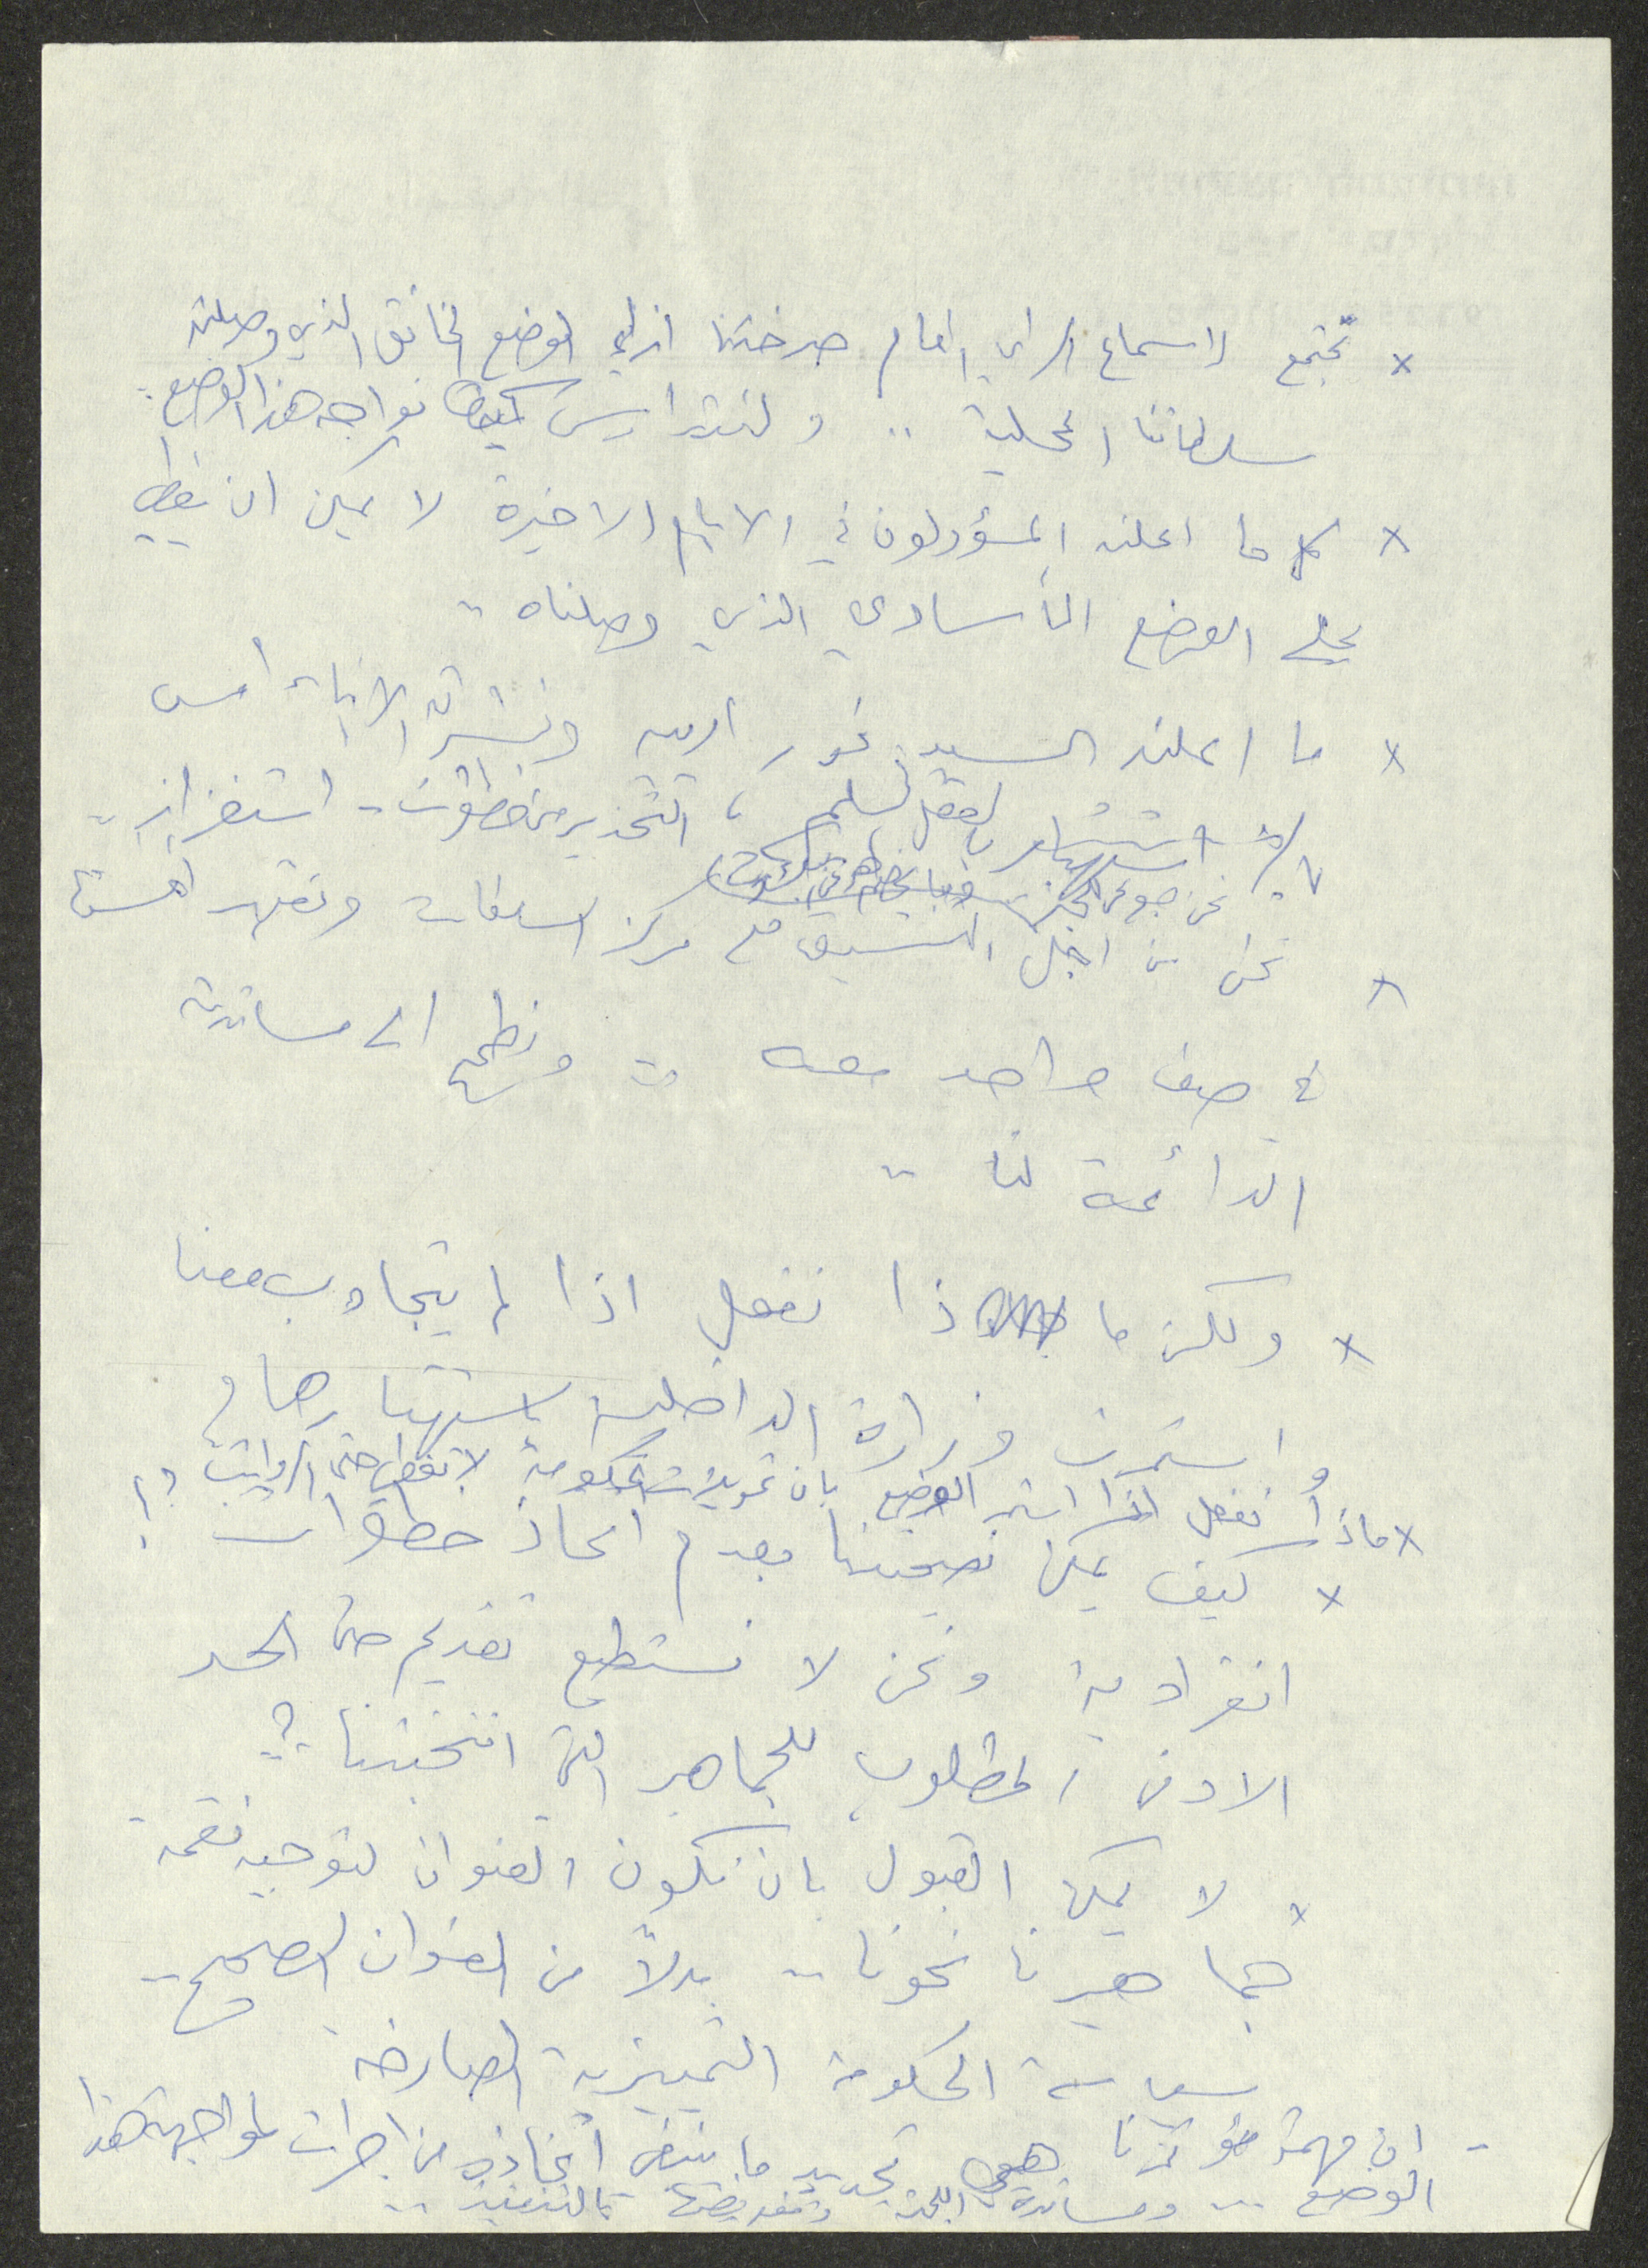 × نجتمع لاسماع الراي العام صرختنا ازاء الوضع الخانق الذي وصلته
سلطاتنا المحلية .. ولنتدارس كيف نواجه هذا الوضع ..
× كل ما اعلنه المسؤولون في الايام الاخيرة لا يمكن ان يغطي
على الوضع المأساوي الذي وصلناه ..
× ما اعلنه السيد اوري ونشرته الانباء امس
استهتار بالعقل السليم ، التحذير من خطوات .. استفزاز ..
نحن جوعى للخبز
× نحن من اجل التنسيق مع مركز السلطات ونقف
في صف واحد معه .. ونطمح الى مساندته
الدائمة لنا ..
× ولكن ماذا نفعل اذا لم يتجاوب معنا
استمرت وزارة الداخلية باستهتارها و
× ماذا نفعل اذا استمر الوضع بان تمويلات الحكومة لا تغطي حتى الرواتب ؟!
× كيف يمكن نصيحتنا بعدم اتخاذ خطوات
انفرادية ونحن لا نستطيع تقديم حتى الحد
الادنى المطلوب للجماهير التي انتخبتنا ؟
× لا يمكن القبول بان نكون العنوان لتوجيه نقمة
جماهيرنا نحونا .. بدلاً من العنوان الصحيح ..
سياسة الحكومة التمييزية الصارخة
- ان مهمة مؤتمرنا هي تحديد ما ينبغي اتخاذه من اجراءات لمواجهة هذا
الوضع ... ومساندة اللجنة وتفويضها بالتنفيذ ..